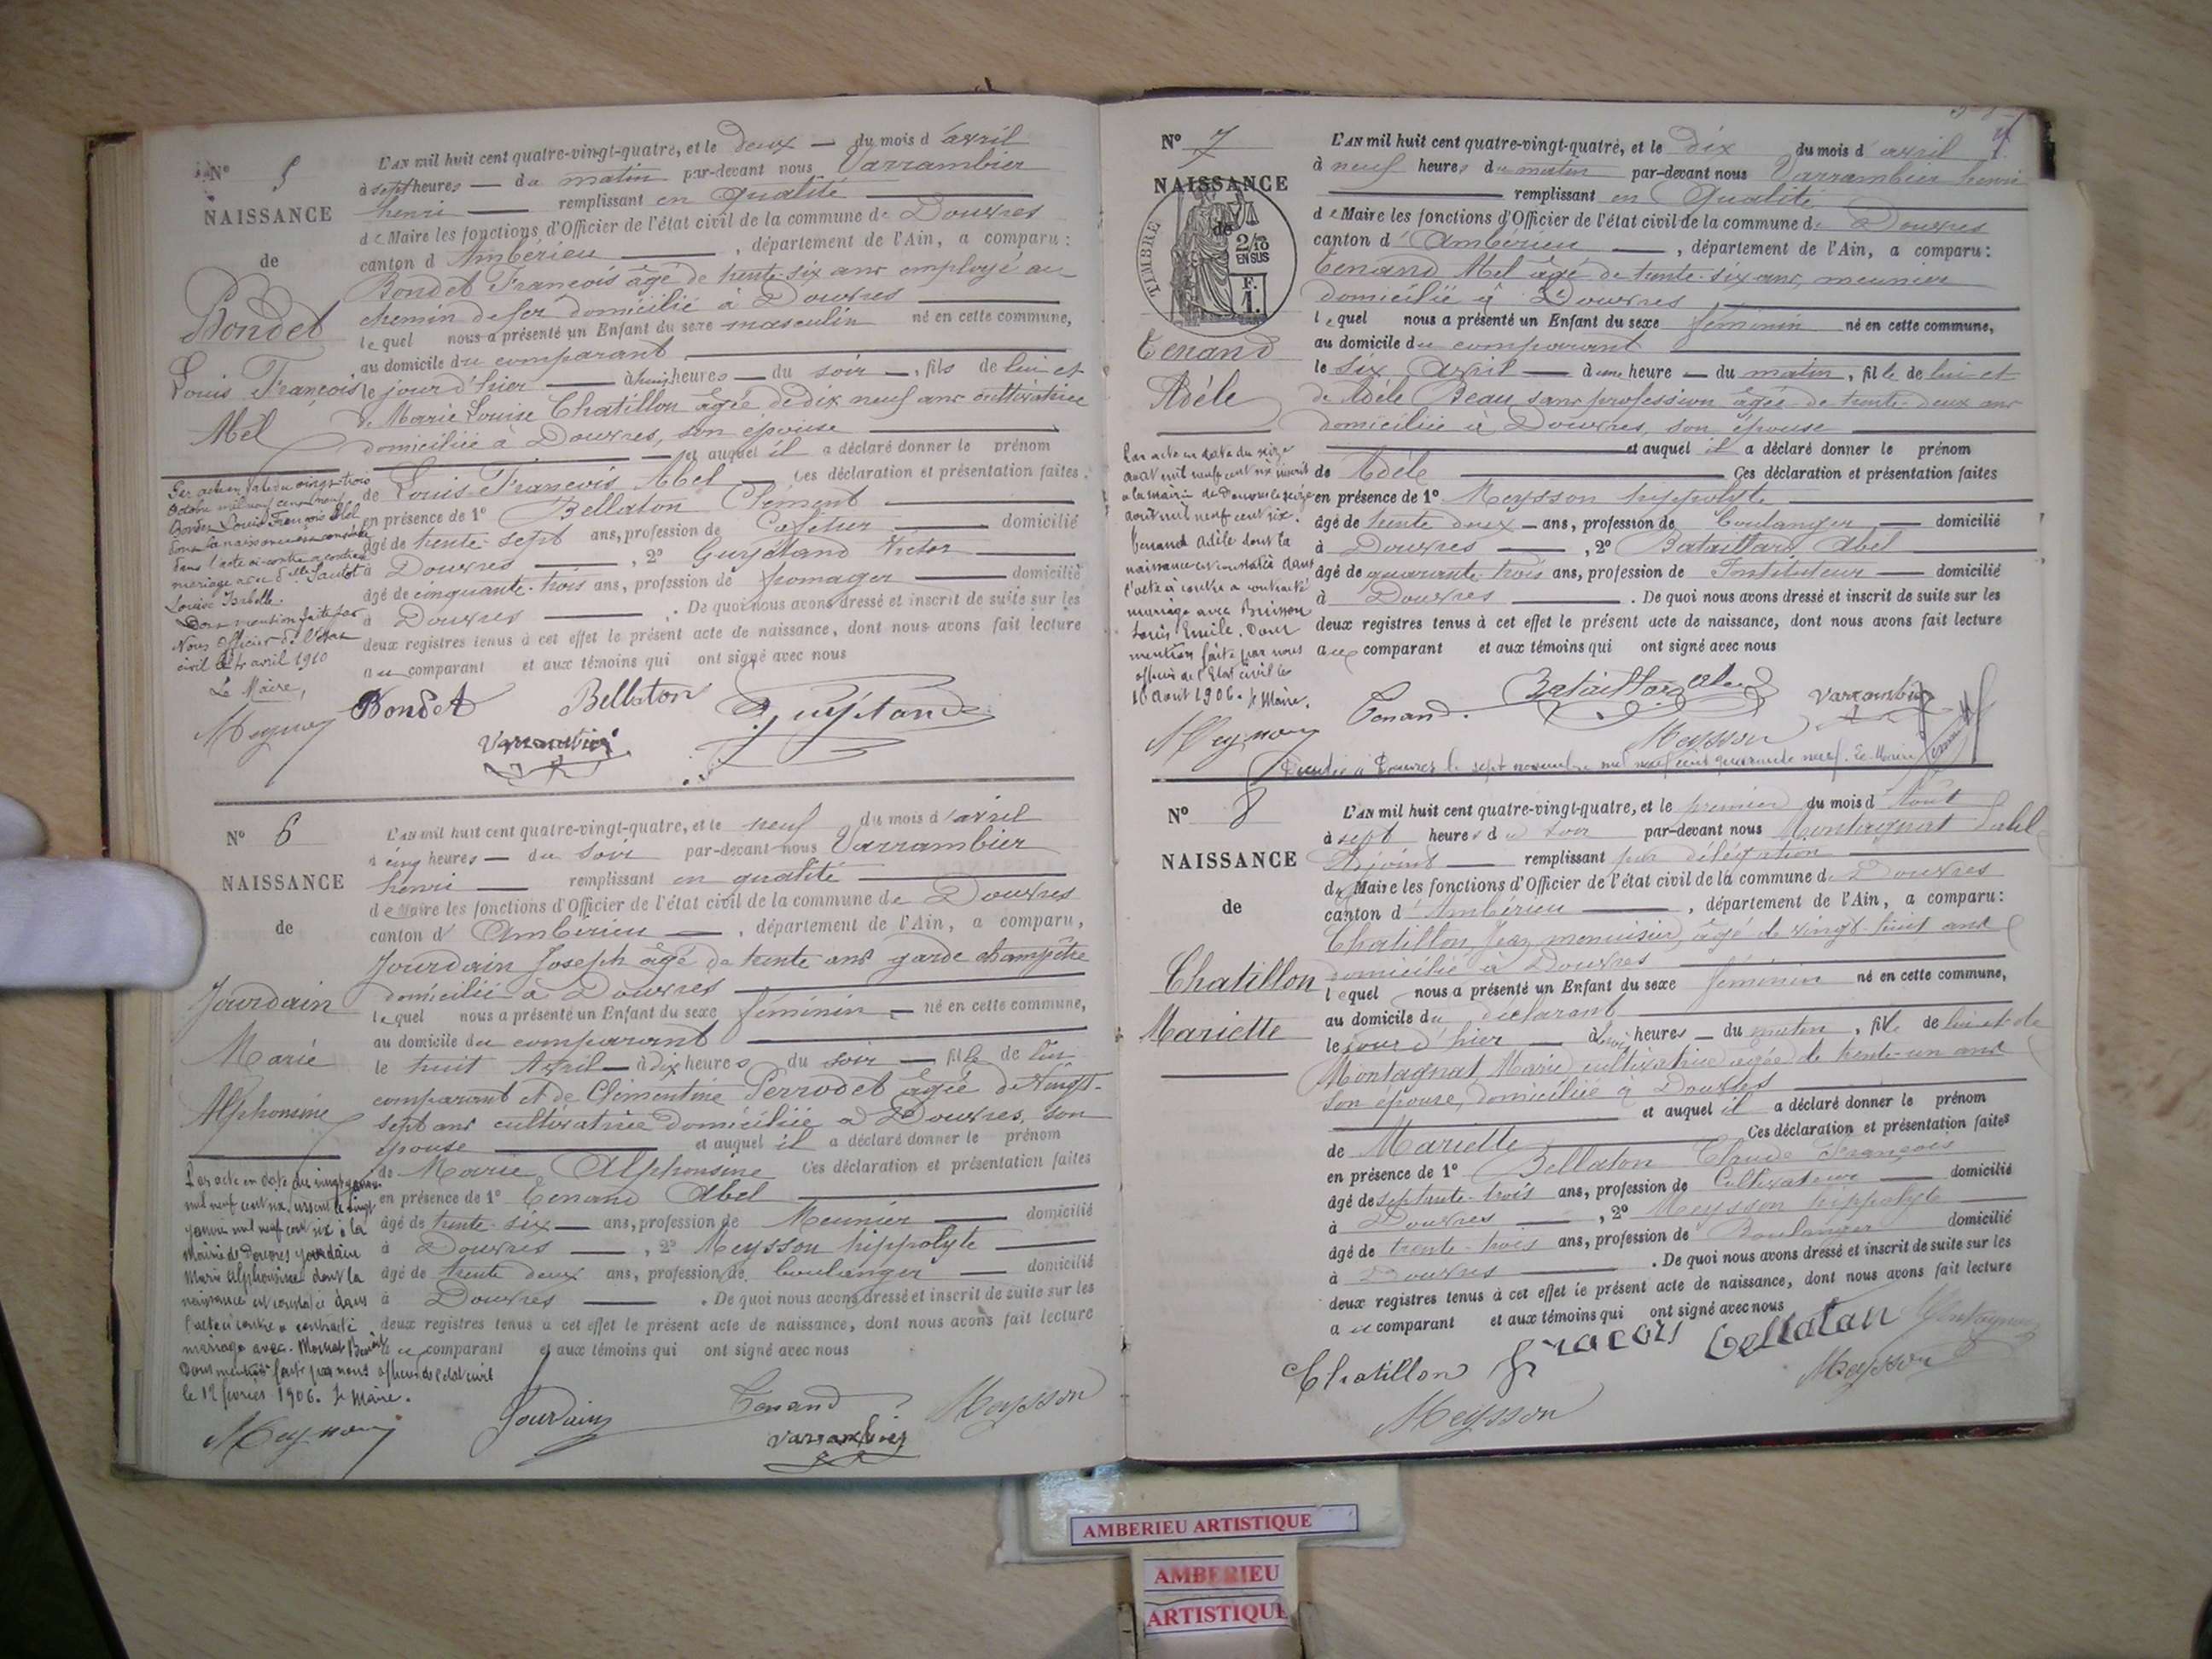 N° 5
NAISSANCE
de
Bondet
Louis François
Abel
L'AN mil huit cent quatre-vingt-quatre, et le deux — du mois d'avril
à sept heures — du matin par-devant nous Varrambier
henri — remplissant en qualité
de Maire les fonctions d'Officier de l'état civil de la commune de Douvres
canton d'Ambérieu — , département de l'Ain, a comparu :
Bondet François âgé de trente-six ans employé au
chemin de fer domicilié à Douvres
lequel nous a présenté un Enfant du sexe masculin né en cette commune,
au domicile du comparant
le jour d'hier — à heures — du soir —, fils de lui et
de Marie Louise Chatillon âgée de dix neuf ans cultivatrice
domiciliée à Douvres, son épouse
et auquel il a déclaré donner le prénom
de Louis François Abel — Ces déclaration et présentation faites
en présence de 1° Bellaton Clément
âgé de trente-sept ans, profession de domicilié
à Douvres — , 2° Guyétand Victor
âgé de cinquante-trois ans, profession de fromager — domicilié
à Douvres — . De quoi nous avons dressé et inscrit de suite sur les
deux registres tenus à cet effet le présent acte de naissance, dont nous avons fait lecture
au comparant et aux témoins qui ont signé avec nous
Par acte en date du vingt-trois
octobre mil neuf cent neuf
Bondet Louis François Abel
dont la naissance est constatée
dans l'acte ci-contre a contracté
mariage avec d'elle Sautot
Louise Isabelle.
Dont mention faite par
Nous Officier de l'état
civil le 4 avril 1910
Le Maire,
Bondet Bellaton Guyétand
Varrambier
N° 6
NAISSANCE
de
Jourdain
Marie
Alphonsine
L'AN mil huit cent quatre-vingt-quatre, et le neuf du mois d'avril
à cinq heures — du soir par-devant nous Varrambier
henri — remplissant en qualité
de Maire les fonctions d'Officier de l'état civil de la commune de Douvres
canton d'Ambérieu — , département de l'Ain, a comparu,
Jourdain Joseph âgé de trente ans garde champêtre
domicilié à Douvres
lequel nous a présenté un Enfant du sexe féminin — né en cette commune,
au domicile du comparant
le huit Avril — à dix heures du soir — fille de lui
comparant et de Clémentine Perrodet âgée de vingt-
sept ans cultivatrice domiciliée à Douvres, son
épouse — et auquel il a déclaré donner le prénom
de Marie Alphonsine Ces déclaration et présentation faites
en présence de 1° Tenand Abel
âgé de trente-six — ans, profession de Meunier — domicilié
à Douvres — , 2° Meysson hippolyte
âgé de trente deux ans, profession de boulanger — domicilié
à Douvres — . De quoi nous avons dressé et inscrit de suite sur les
deux registres tenus à cet effet le présent acte de naissance, dont nous avons fait lecture
au comparant et aux témoins qui ont signé avec nous
Par acte en date du vingt janvier
mil neuf cent six, inscrit le vingt
janvier mil neuf cent six à la
Mairie de Douvres Jourdain
Marie Alphonsine dont la
naissance est constatée dans
l'acte ci contre a contracté
mariage avec
Dont mention faite par nous officier de l'état civil
le 12 février 1906. Le Maire.
Jourdain Tenand Meysson
Varrambier
N° 7
NAISSANCE
de
TIMBRE
2/10 EN SUS
F. 1.
Tenand
Adèle
L'AN mil huit cent quatre-vingt-quatre, et le dix du mois d'avril
à neuf heures du matin par-devant nous Varrambier henri
remplissant en Qualité
de Maire les fonctions d'Officier de l'état civil de la commune de Douvres
canton d'Ambérieu — , département de l'Ain, a comparu :
Tenand Abel âgé de trente-six ans, meunier
domicilié à Douvres
lequel nous a présenté un Enfant du sexe féminin né en cette commune,
au domicile du comparant
le six Avril — à une heure — du matin, fille de lui et
de Adèle Beau sans profession âgée de trente-deux ans
domiciliée à Douvres, son épouse
et auquel il a déclaré donner le prénom
de Adèle — Ces déclaration et présentation faites
en présence de 1° Meysson hippolyte
âgé de trente deux — ans, profession de boulanger — domicilié
à Douvres — , 2° Bataillard Abel
âgé de quarante-trois ans, profession de Instituteur — domicilié
à Douvres — . De quoi nous avons dressé et inscrit de suite sur les
deux registres tenus à cet effet le présent acte de naissance, dont nous avons fait lecture
au comparant et aux témoins qui ont signé avec nous
Par acte en date du seize
août mil neuf cent six inscrit
à la mairie de Douvres le seize
août mil neuf cent six.
Tenand Adèle dont la
naissance est constatée dans
l'acte ci contre a contracté
mariage avec Buisson
Louis Emile. Dont
mention faite par nous
officier de l'Etat civil les
16 août 1906. Le Maire.
Tenand. Bataillard Abel Varrambier
Meysson
Décédée à Douvres le sept novembre mil neuf cent quarante neuf. Le Maire
N° 8
NAISSANCE
de
Chatillon
Mariette
L'AN mil huit cent quatre-vingt-quatre, et le premier du mois d'Août
à sept heures du soir par-devant nous Montagnat
Adjoint — remplissant par délégation
de Maire les fonctions d'Officier de l'état civil de la commune de Douvres
canton d'Ambérieu — , département de l'Ain, a comparu :
Chatillon Jean menuisier, âgé de vingt-huit ans
domicilié à Douvres
lequel nous a présenté un Enfant du sexe féminin né en cette commune,
au domicile du déclarant
le jour d'hier — à heures — du matin, fille de lui et de
Montagnat Marie cultivatrice âgée de trente-un ans
son épouse, domiciliée à Douvres
et auquel il a déclaré donner le prénom
de Mariette — Ces déclaration et présentation faites
en présence de 1° Bellaton Claude François
âgé de septante-trois ans, profession de Cultivateur — domicilié
à Douvres — , 2° Meysson hippolyte
âgé de trente-trois ans, profession de Boulanger domicilié
à Douvres — . De quoi nous avons dressé et inscrit de suite sur les
deux registres tenus à cet effet le présent acte de naissance, dont nous avons fait lecture
au comparant et aux témoins qui ont signé avec nous
Chatillon fracois bellatan Montagnat
Meysson
Meysson
AMBERIEU ARTISTIQUE
AMBERIEU
ARTISTIQUE